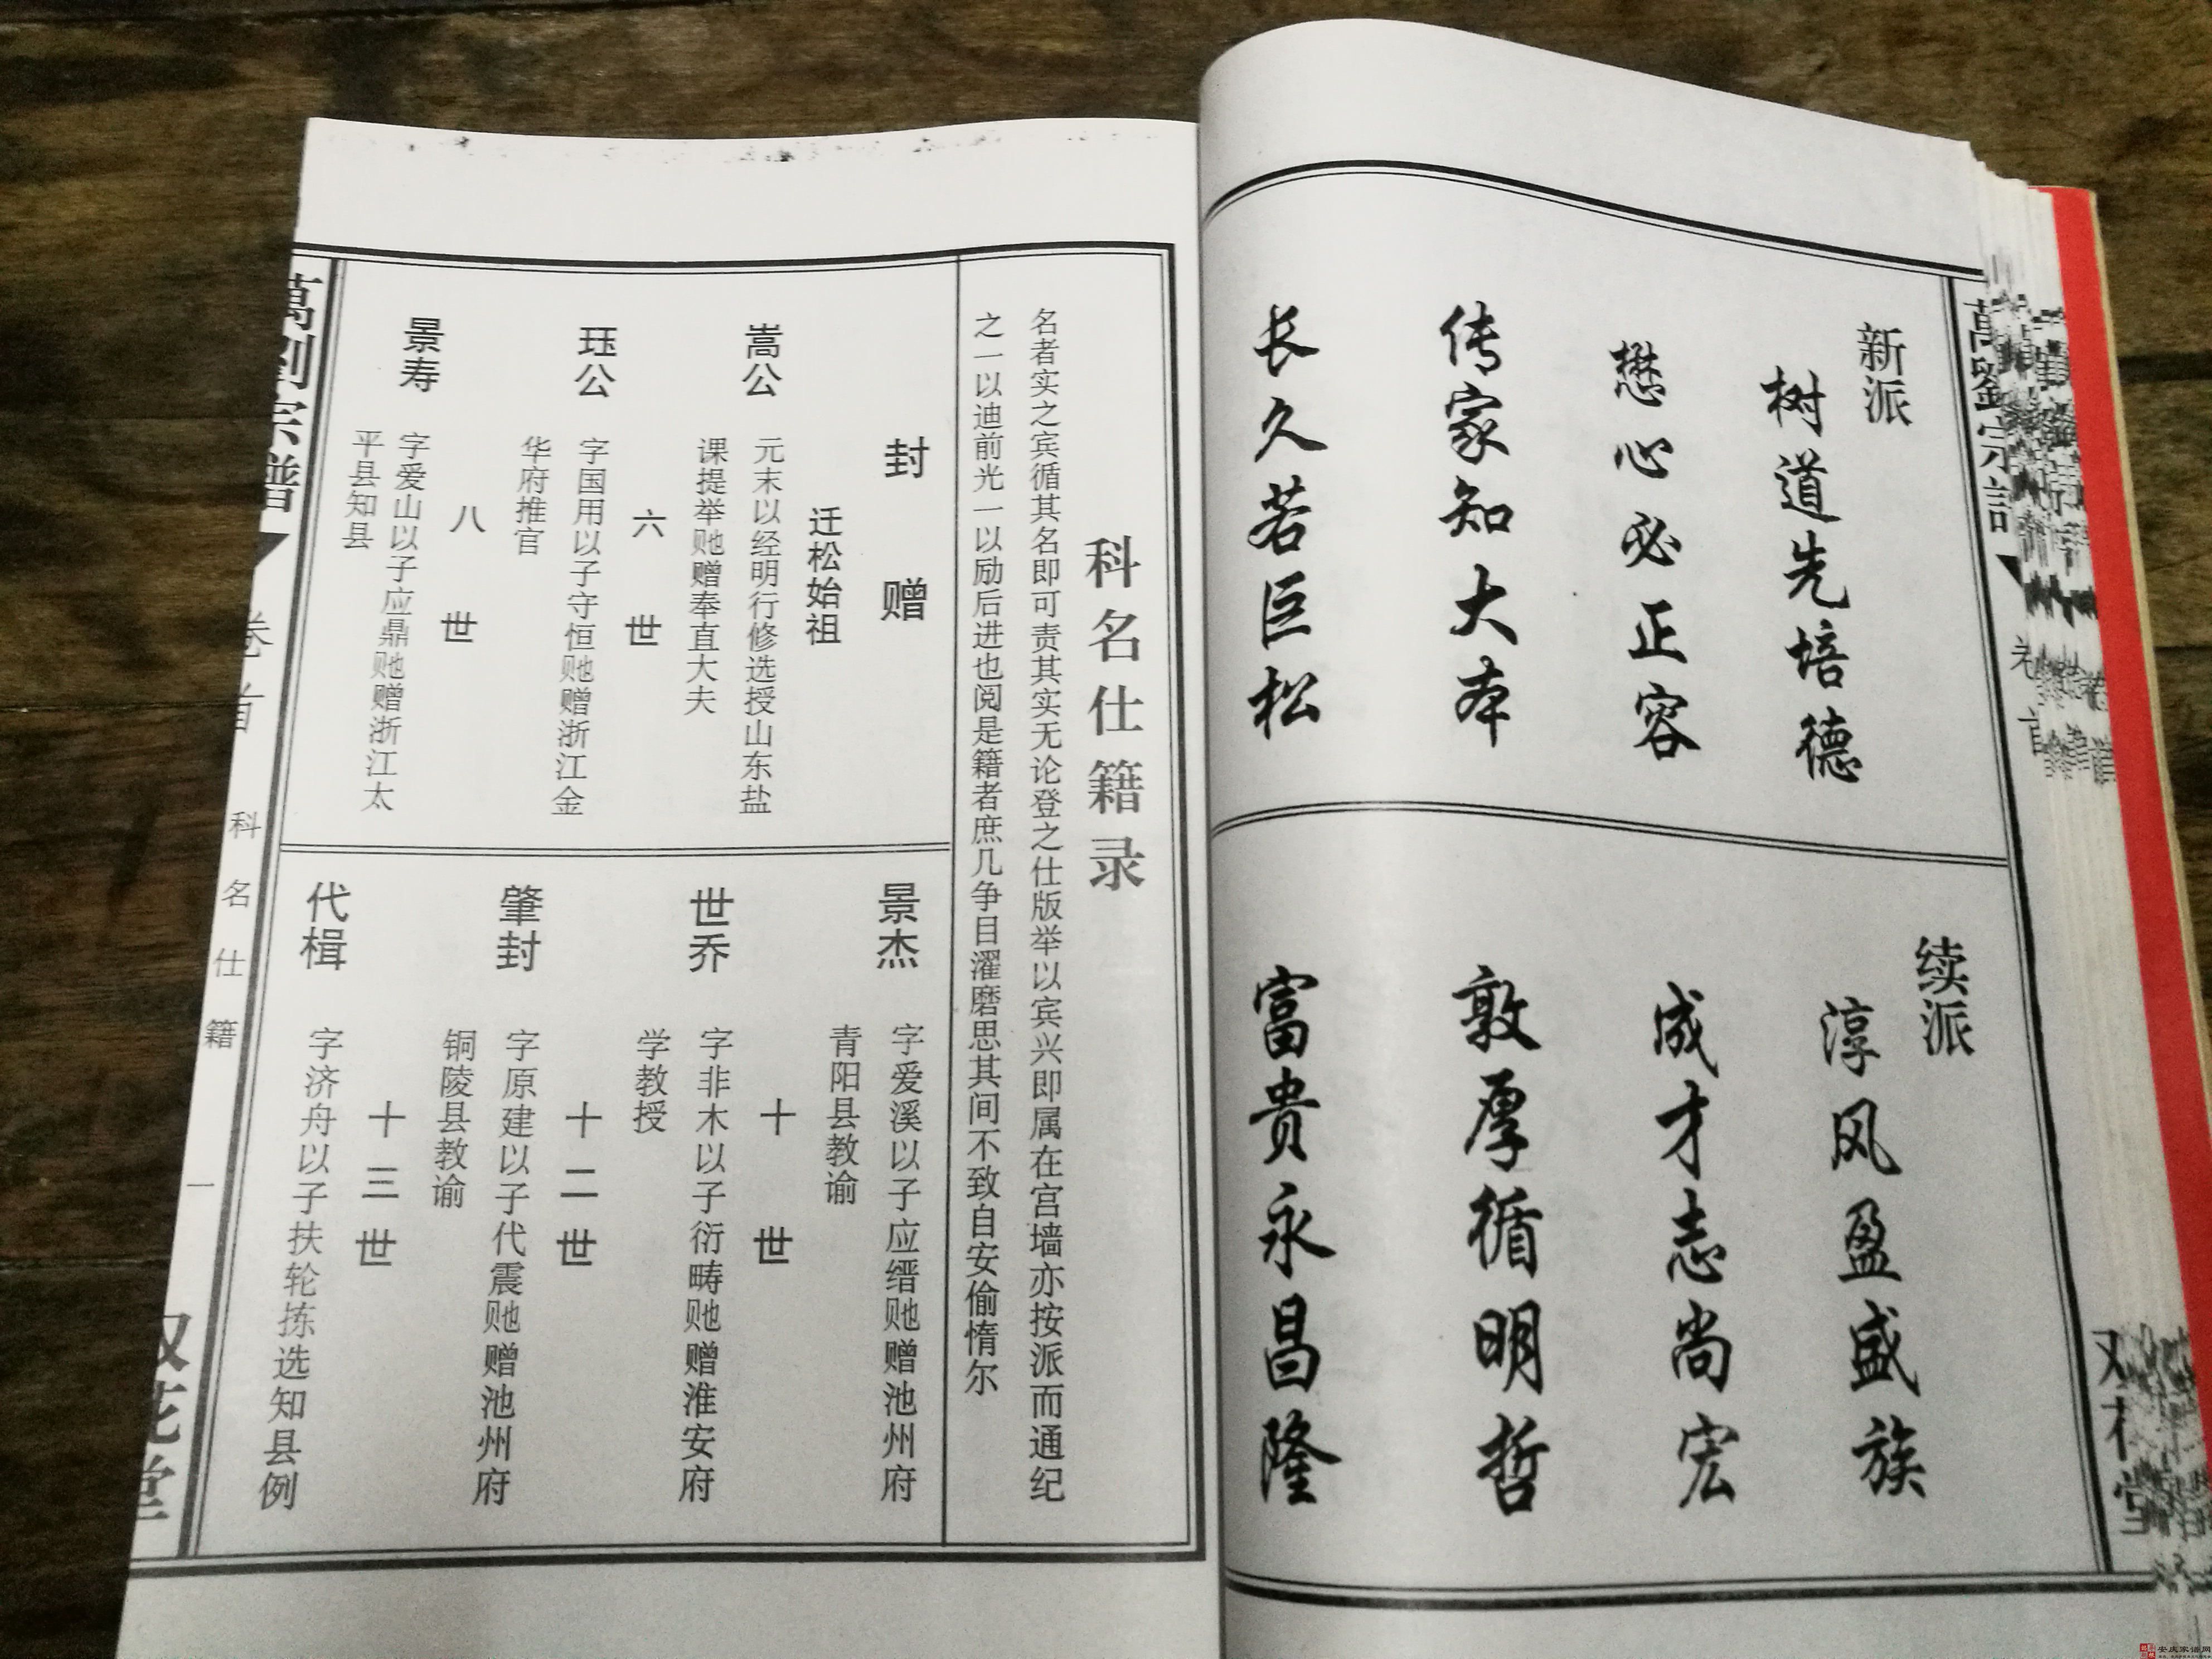 萬劉宗譜
新派
树道先培德
懋心必正容
传家知大本
长久若巨松
续派
淳风盈盛族
成才志尚宏
敦厚循明哲
富贵永昌隆
科名仕籍录
名者实之宾循其名即可责其实无论登之仕版举以宾兴即属在宫墙亦按派而通纪
之一以迪前光一以励后进也阅是籍者庶几争目濯磨思其间不致自安偷惰尔
封赠
迁松始祖
嵩公
元末以经明行修选授山东盐
课提举贶赠奉直大夫
六世
珏公
字国用以子守恒贶赠浙江金
华府推官
八世
景寿
字爱山以子应鼎贶赠浙江太
平县知县
景杰
字爱溪以子应缙贶赠池州府
青阳县教谕
十世
世乔
字非木以子衍畴贶赠淮安府
学教授
十二世
肇封
字原建以子代震贶赠池州府
铜陵县教谕
十三世
代楫
字济舟以子扶轮拣选知县例
萬劉宗譜
卷首
科名仕籍
一
双花堂
安庆家谱网